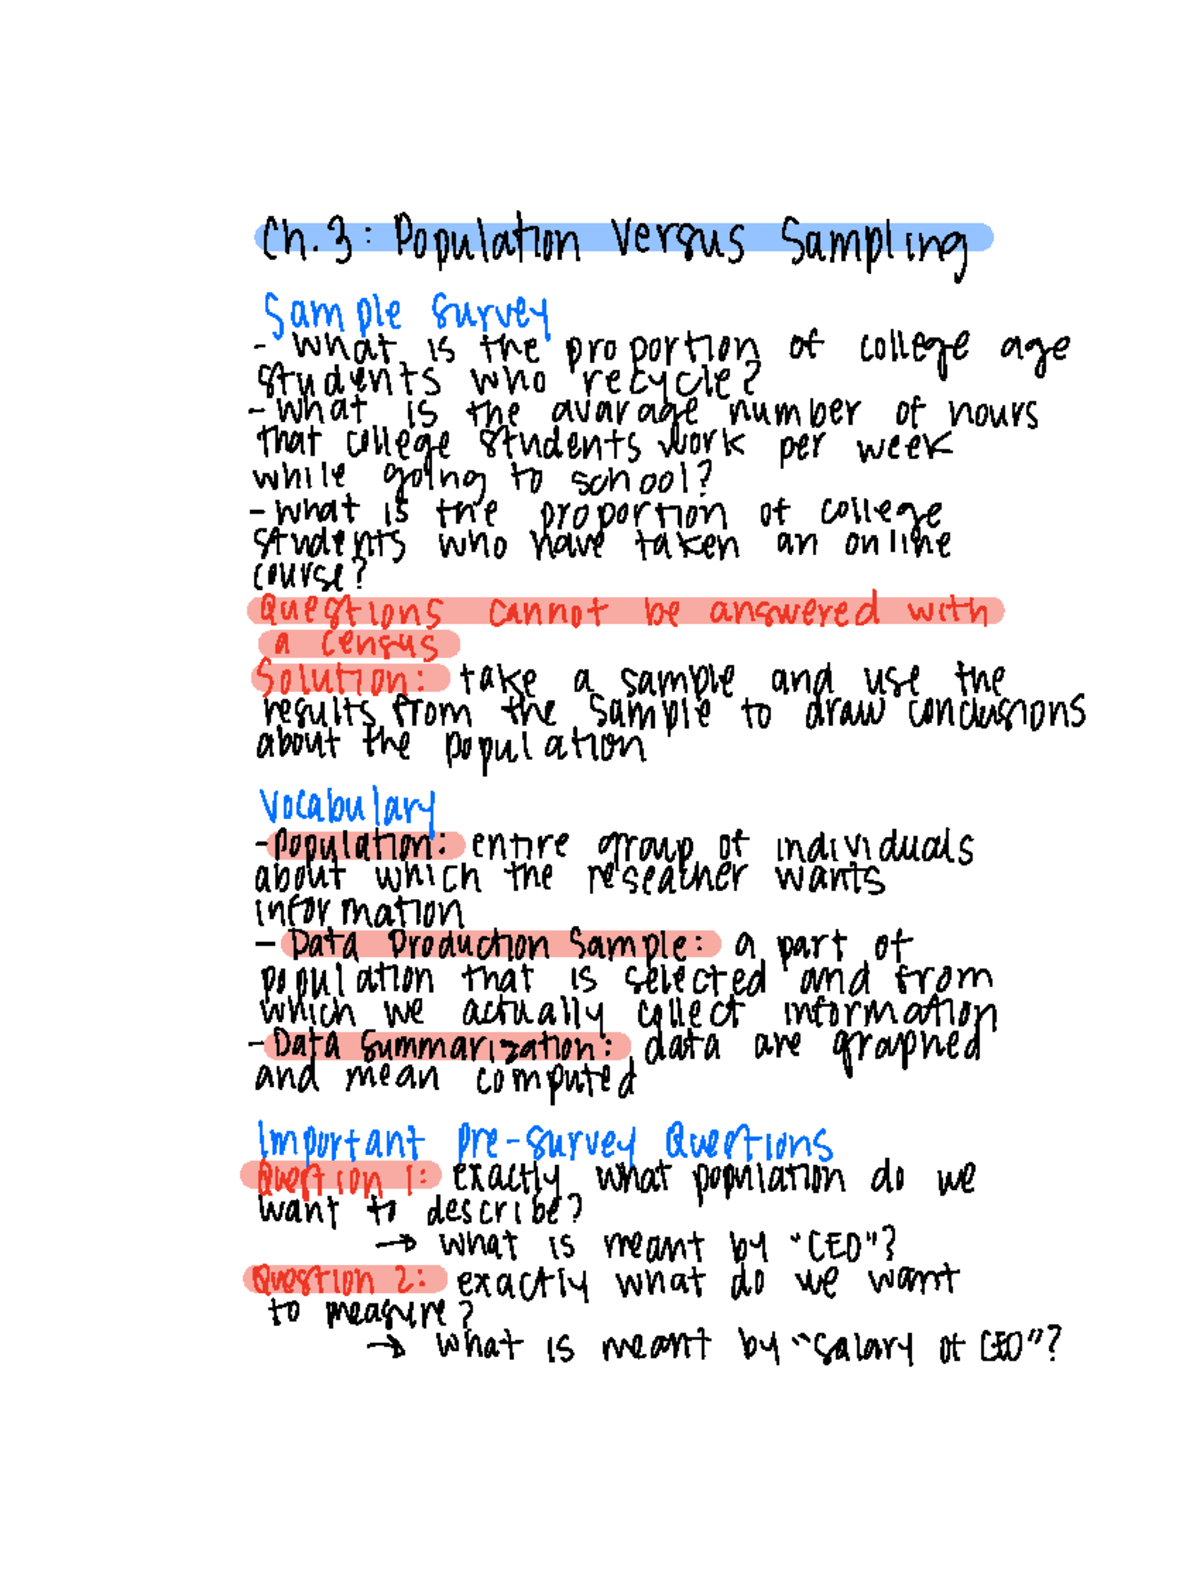 Ch. 3: Population Versus Sampling
Sample Survey
- What is the proportion of college age
students who recycle?
- What is the avarage number of hours
that college students work per week
while going to school?
- What is the proportion of college
students who have taken an online
course?
Questions cannot be answered with
a census
Solution: take a sample and use the
results from the sample to draw conclusions
about the population
Vocabulary
- Population: entire group of individuals
about which the reseacher wants
information
- Data Production Sample: a part of
population that is selected and from
which we actually collect information
- Data Summarization: data are graphed
and mean computed
Important pre-survey Questions
Question 1: exactly what population do we
want to describe?
→ What is meant by "CEO"?
Question 2: exactly what do we want
to measure?
→ What is meant by "salary of CEO"?